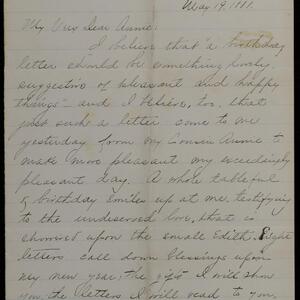 May 19, 1881.
My Very dear Annie:
I believe that "a birthday
letter should be something lovely,
suggestive of pleasant and happy
things" and I believe, too, that
just such a letter come to me
yesterday from my Cousin Annie to
make more pleasant my exceedingly
pleasant day. A whole table full
of birthday smiles up at me, testifying
to the undeserved love, that is
showered upon the small Edith. Eight
letters call down blessings upon
my new year; the gifts I will show
you, the letters I will read to you,